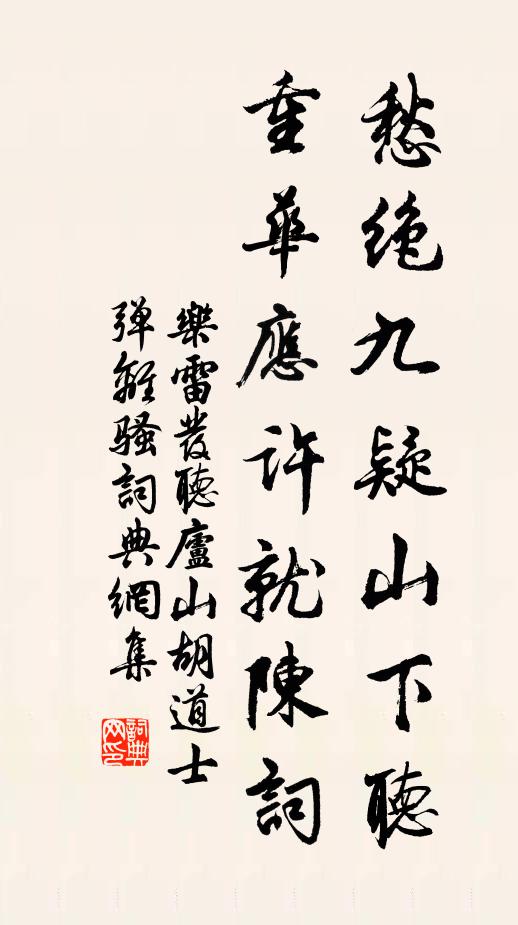 愁绝九疑山下聽
重華應许就陳詞
樂雷發聽廬山胡道士
弹離騷詞典網集
詞典网印